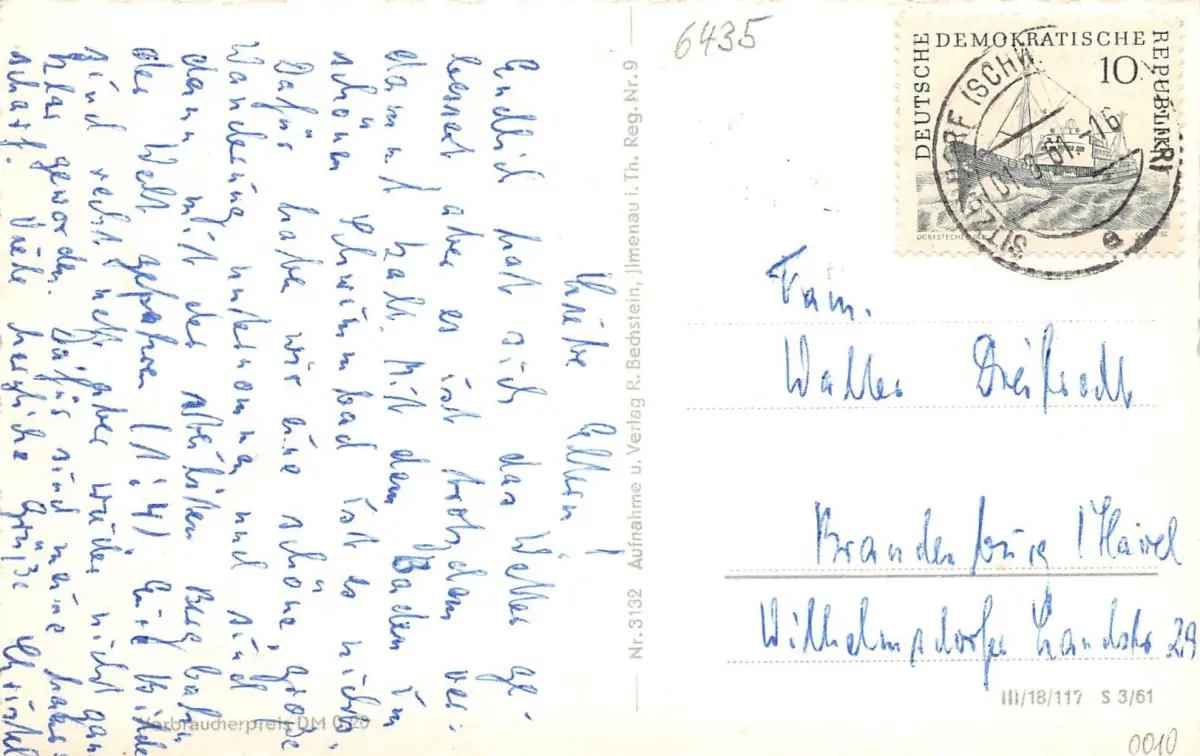 Liebe Eltern!
Endlich hat sich das Wetter ge-
bessert aber es ist trotzdem ver-
dammt kalt. Mit dem Baden im
schönen Schwimmbad ist es nichts.
Dafür haben wir eine schöne, große
Wanderung unternommen und sind
dann mit der steilsten Bergbahn
der Welt gefahren (1:4) Die Kinder
sind recht nett aber wieder nicht ganz
klar geworden. Dafür sind meine
scharf. Viele herzliche Grüße Christel
Verbraucherpreis DM 0,20
Nr. 3132 Aufnahme u. Verlag R. Bechstein, Jlmenau i. Th. Reg. Nr. 9
6435
DEUTSCHE DEMOKRATISCHE REPUBLIK
10
SITZENDORF (SCHW
01.8.61.-16
e
Fam.
Walter
Brandenburg / Havel
Wilhelmsdorfer Landstr 29
III/18/117 S 3/61
0010